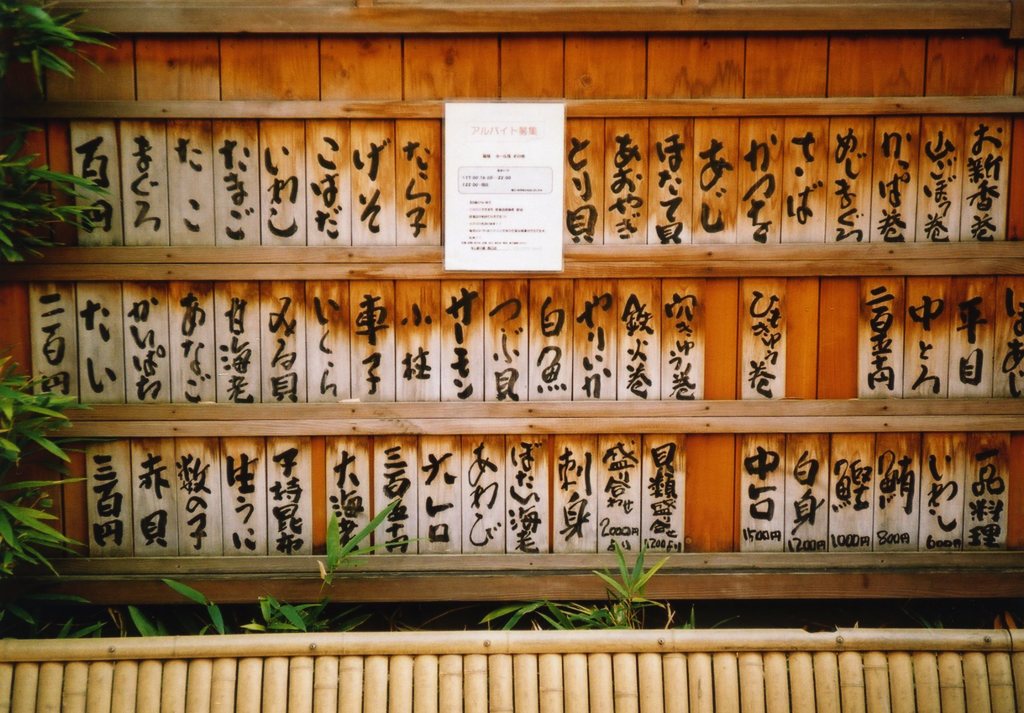 百円
まぐろ
たこ
たまご
いわし
こはだ
げそ
たら子
アルバイト募集
とり貝
あおやぎ
ほたて貝
あじ
かつを
さば
めじまぐろ
かっぱ巻
山ごぼう巻
お新香巻
二百円
たい
かいばしら
あなご
甘海老
みる貝
いくら
車子
小柱
サーモン
つぶ貝
白魚
やりいか
鉄火巻
穴きゅう巻
ひもきゅう巻
二百五十円
中とろ
平目
しまあじ
三百円
赤貝
数の子
生うに
子持昆布
大海老
三百五十円
大トロ
あわび
ぼたん海老
刺身
盛り合わせ
2000円より
貝類盛合
1200円より
中トロ
1500円
白身
1200円
鰹
1000円
鮪
800円
いわし
600円
一品料理